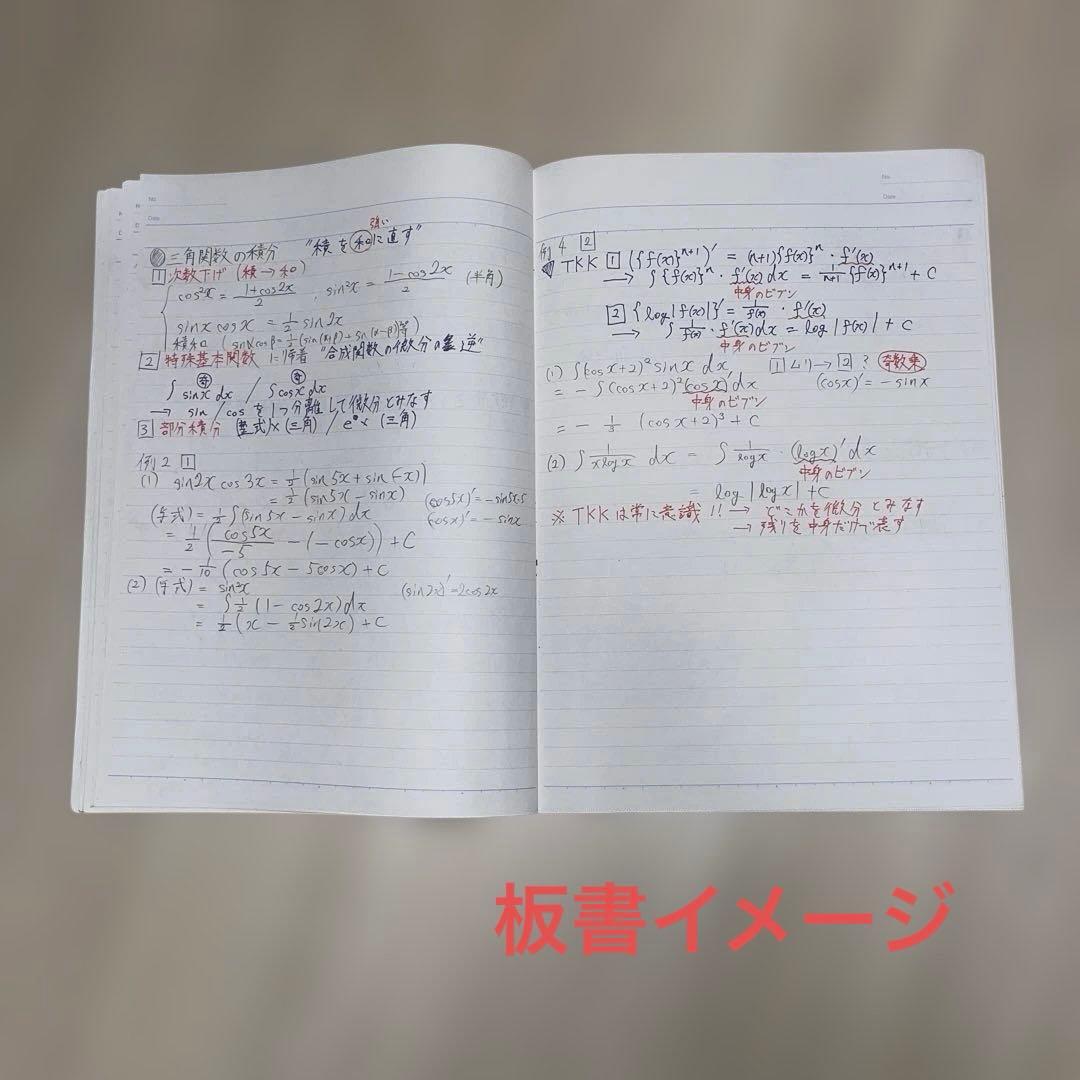 No.
Date
三角関数の積分 "積を和に直す"
強い
1 次数下げ (積→和)
cos²x = (1+cos2x)/2 , sin²x = (1-cos2x)/2 (半角)
sinx cosx = 1/2 sin2x
積和 (sinαcosβ = 1/2(sin(α+β)+sin(α-β)等)
2 特殊基本関数に帰着 "合成関数の微分の逆"
∫sin^奇x dx / ∫cos^奇x dx
→ sin/cosを1つ分離して微分とみなす
3 部分積分 (整式)×(三角) / e^x × (三角)
例2 1
(1) sin2x cos3x = 1/2(sin5x+sin(-x))
= 1/2(sin5x-sinx)
(与式) = 1/2∫(sin5x-sinx)dx (cos5x)'=-sin5x·5
(cosx)'=-sinx
= 1/2(cos5x/-5 -(-cosx))+C
= -1/10(cos5x-5cosx)+C
(2) (与式) = sin²x (sin2x)'=2cos2x
= ∫1/2(1-cos2x)dx
= 1/2(x-1/2sin2x)+C
No.
Date
例4 2
TKK 1 ({f(x)}^{n+1})' = (n+1){f(x)}^n · f'(x)
→ ∫{f(x)}^n · f'(x)dx = 1/(n+1){f(x)}^{n+1}+C
中身のビブン
2 {log|f(x)|}' = 1/f(x) · f'(x)
→ ∫1/f(x) · f'(x)dx = log|f(x)|+C
中身のビブン
(1) ∫(cosx+2)²sinx dx 1ムリ→2? 奇数乗
= -∫(cosx+2)²(cosx)'dx (cosx)'=-sinx
中身のビブン
= -1/3 (cosx+2)³+C
(2) ∫1/(xlogx) dx = ∫1/logx · (logx)'dx
中身のビブン
= log|logx|+C
※TKKは常に意識!! → どこかを微分とみなす
→ 残りを中身だけで表す
板書イメージ